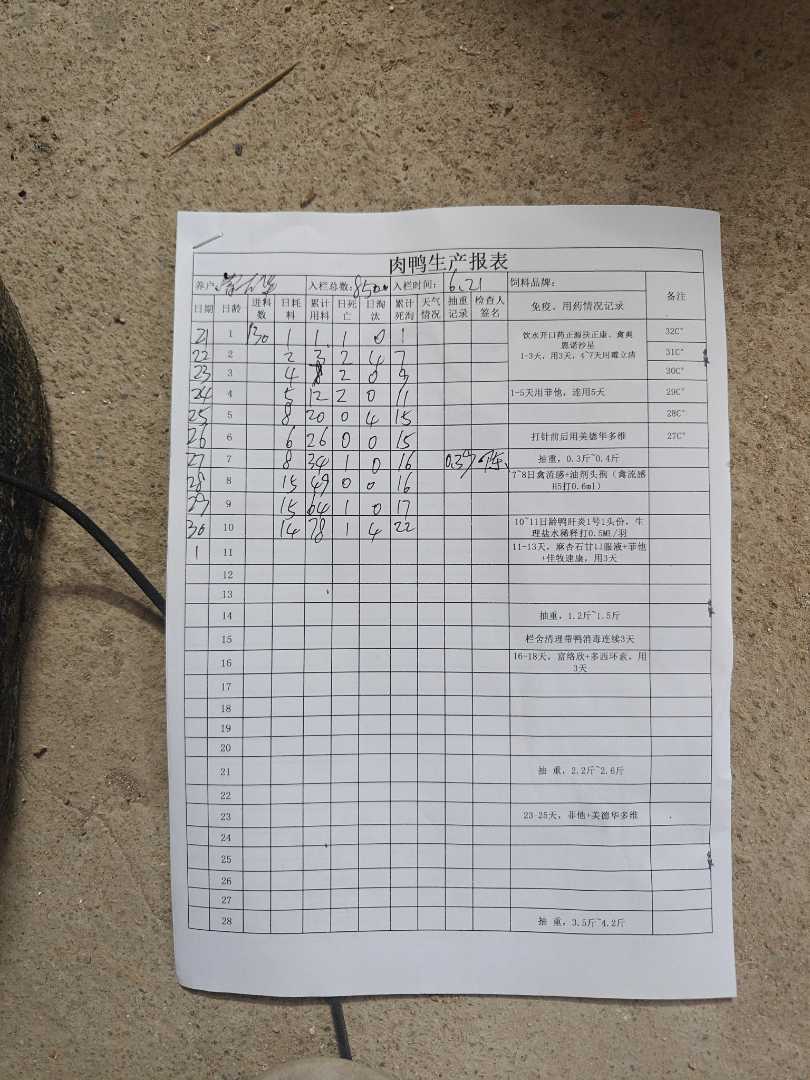 肉鸭生产报表
养户: 入栏总数: 8500 入栏时间: 6.21 饲料品牌: 备注
日期 日龄 进料数 日耗料 累计用料 日死亡 日淘汰 累计死淘 天气情况 抽重记录 检查人签名 免疫、用药情况记录
21 1 130 1 1 1 0 1 饮水开口药正源扶正康、禽爽 32C°
恩诺沙星
22 2 2 3 2 4 7 1-3天，用3天，4~7天用霉立清 31C°
23 3 4 8 2 0 9 30C°
24 4 5 12 2 0 11 1-5天用菲他，连用5天 29C°
25 5 8 20 0 4 15 28C°
26 6 6 26 0 0 15 打针前后用美德华多维 27C°
27 7 8 34 1 0 16 抽重，0.3斤~0.4斤
28 8 15 49 0 0 16 7~8日禽流感+油剂头孢（禽流感
H5打0.6ml）
29 9 15 64 1 0 17
30 10 14 78 1 4 22 10~11日龄鸭肝炎1号1头份，生
理盐水稀释打0.5ML/羽
1 11 11-13天，麻杏石甘口服液+菲他
+佳牧速康，用3天
12
13
14 抽重，1.2斤~1.5斤
15 栏舍清理带鸭消毒连续3天
16 16-18天，富络欣+多西环素，用
3天
17
18
19
20
21 抽 重，2.2斤~2.6斤
22
23 23-25天，菲他+美德华多维
24
25
26
27
28 抽 重，3.5斤~4.2斤